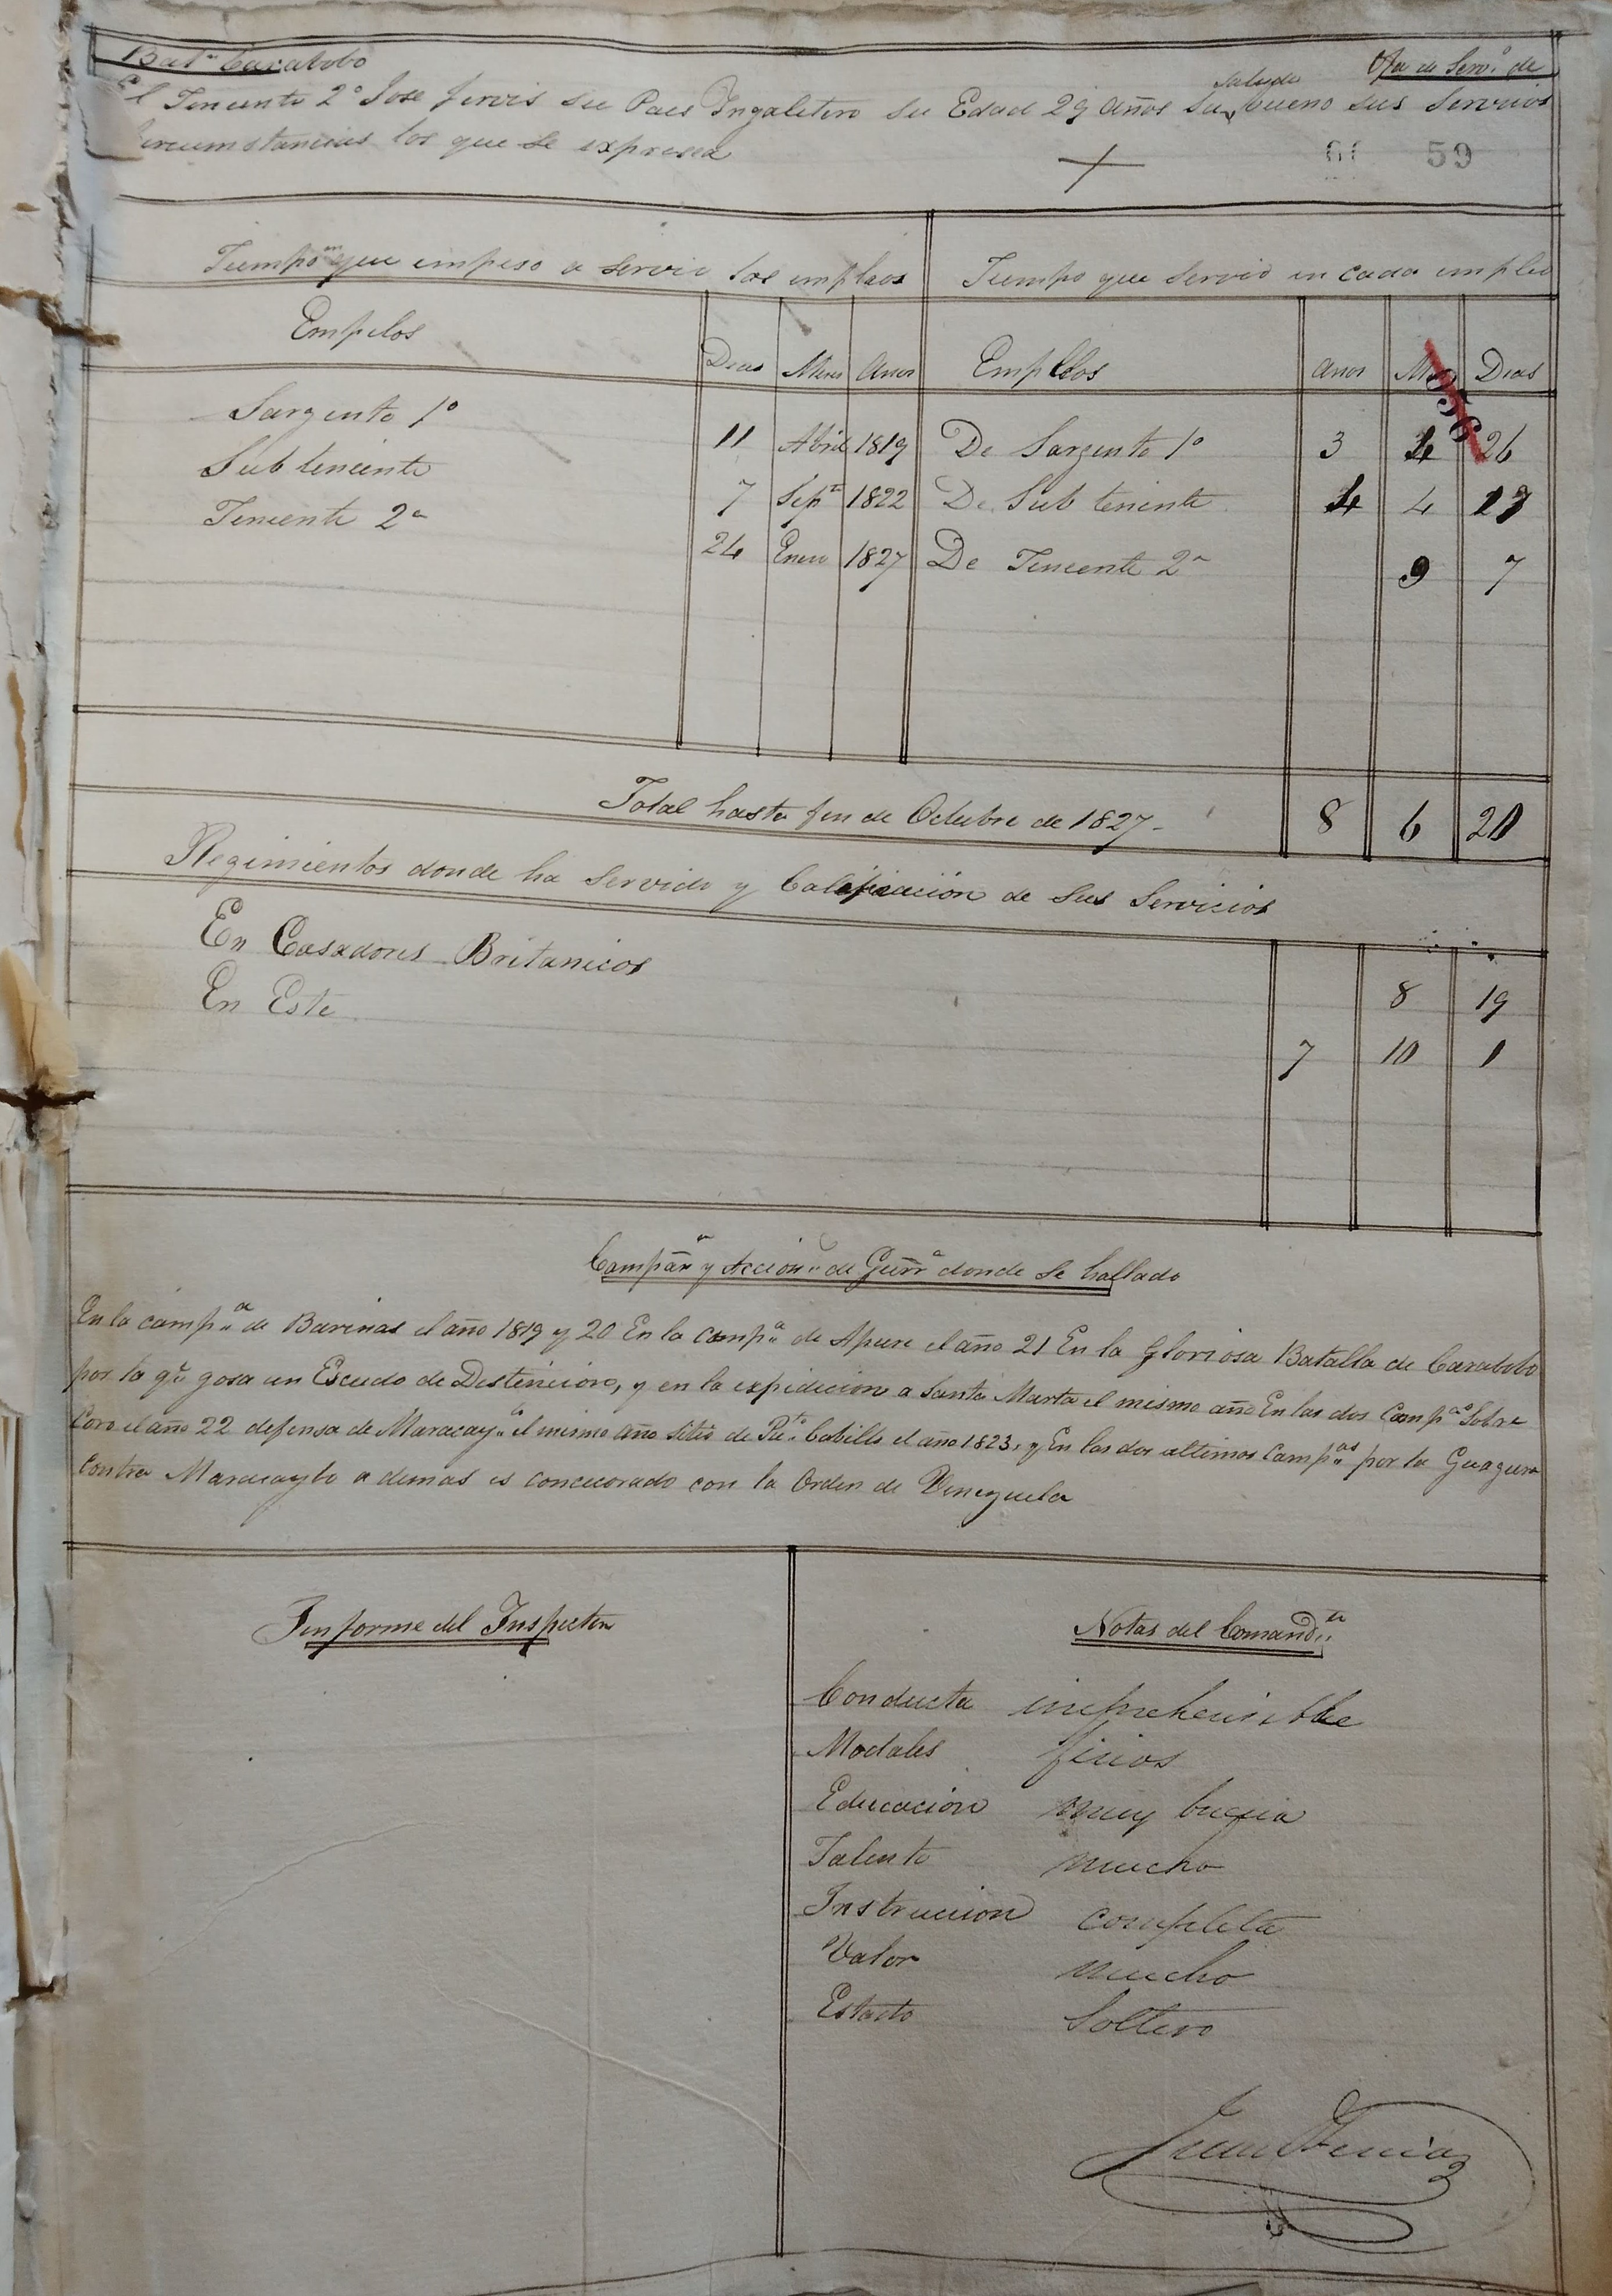 Bat.n Carabobo
Oja de Serv.s de
El Teniente 2º Jose Jervis su Pais Yngaletero su Edad 29 años Su salude bueno sus Servicios
circumstancias los que se expresa
61 59
Tiempo en que empeso a servir los empleos
Tiempo que servio en cada empleo
Empelos Dias Meses Anos Empleos anos Ms Dias
956
Sargento 1º 11 Abril 1819 De Sargento 1º 3 4 26
Sub teniente 7 Sepe 1822 De Sub teniente 4 4 17
Teniente 2º 24 Enero 1827 De Teniente 2º 9 7
Total hasta fin de Octubre de 1827 8 6 20
Regimientos donde ha Servido y Calificación de Sus Servicios
En Casadores Britanicos 8 19
En Este 7 10 1
Campañ.s y Accion.s de Guerr.a donde se hallado
En la camp.a de Barinas el año 1819 y 20 En la camp.a de Apure el año 21 En la Gloriosa Batalla de Carabobo
por la q.e gosa un Escudo de Distincion, y en la expedicion a Santa Marta el mismo año En las dos Camp.as Sobre
Coro el año 22 defensa de Maracay.o el mismo año sitio de Pto. Cabillo el año 1823, y En las dos ultimos Camp.as por la Guagura
Contra Maracaybo a demas es concuorado con la Orden de Venezuela
Informe del Inspector
Notas del Comand.te
Conducta inreprehensible
Modales finos
Educacion muy buena
Talento mucho
Instruccion completa
Valor mucho
Estado Soltero